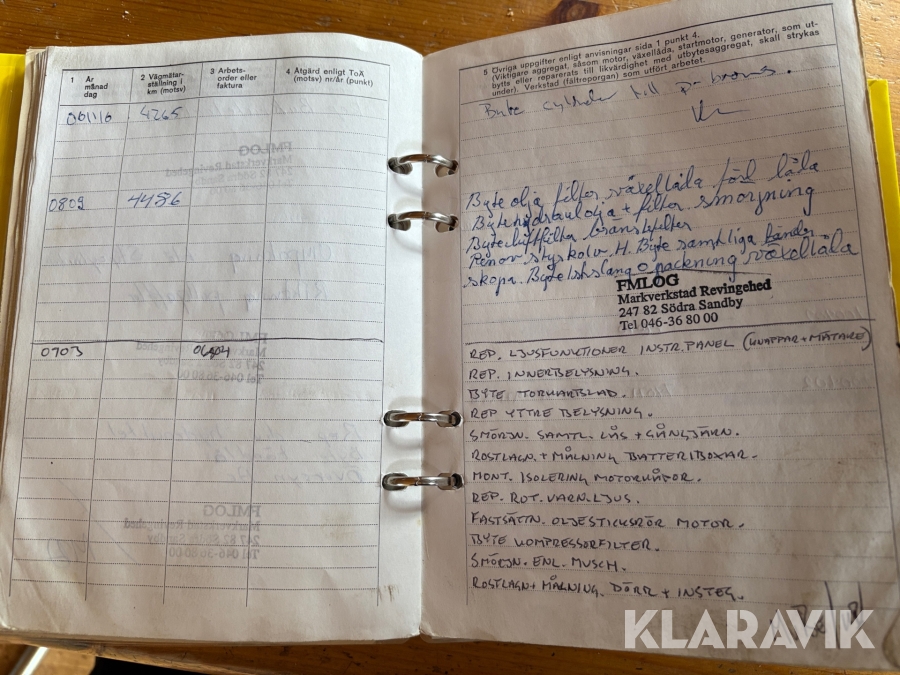 1 År månad dag
2 Vägmätar-ställning i km (motsv)
3 Arbets-order eller faktura
4 Åtgärd enligt ToA (motsv) nr/år (punkt)
001116 4265
0809 4486
0703
5 Övriga uppgifter enligt anvisningar sida 1 punkt 4.
(Viktigare aggregat, såsom motor, växellåda, startmotor, generator, som ut-
bytts eller reparerats till likvärdighet med utbytesaggregat, skall strykas
under). Verkstad (fältreporgan) som utfört arbetet.
Byte cylinder till p-broms.
Byte olja filter växellåda förd låda
Byte hydraulolja + filter smörjning
Byte luftfilter bränslefilter
Renov styrkolv H. Byte samtliga tänder
skopa. Byte slang o packning växellåda
FMLOG
Markverkstad Revingehed
247 82 Södra Sandby
Tel 046-36 80 00
REP. LJUSFUNKTIONER INSTR.PANEL (KNAPPAR + MÄTARE)
REP. INNERBELYSNING.
BYTE TORKARBLAD.
REP YTTRE BELYSNING.
SMÖRJN. SAMTL. LÅS + GÅNGJÄRN.
ROSTLAGN. + MÅLNING BATTERIBOXAR.
MONT. ISOLERING MOTORHUV.
REP. ROT. VARN.LJUS.
FASTSÄTTN. OLJESTICKSRÖR MOTOR.
BYTE KOMPRESSORFILTER.
SMÖRJN. ENL. MUSCH.
ROSTLAGN + MÅLNING. DÖRR + INSTEG.
KLARAVIK